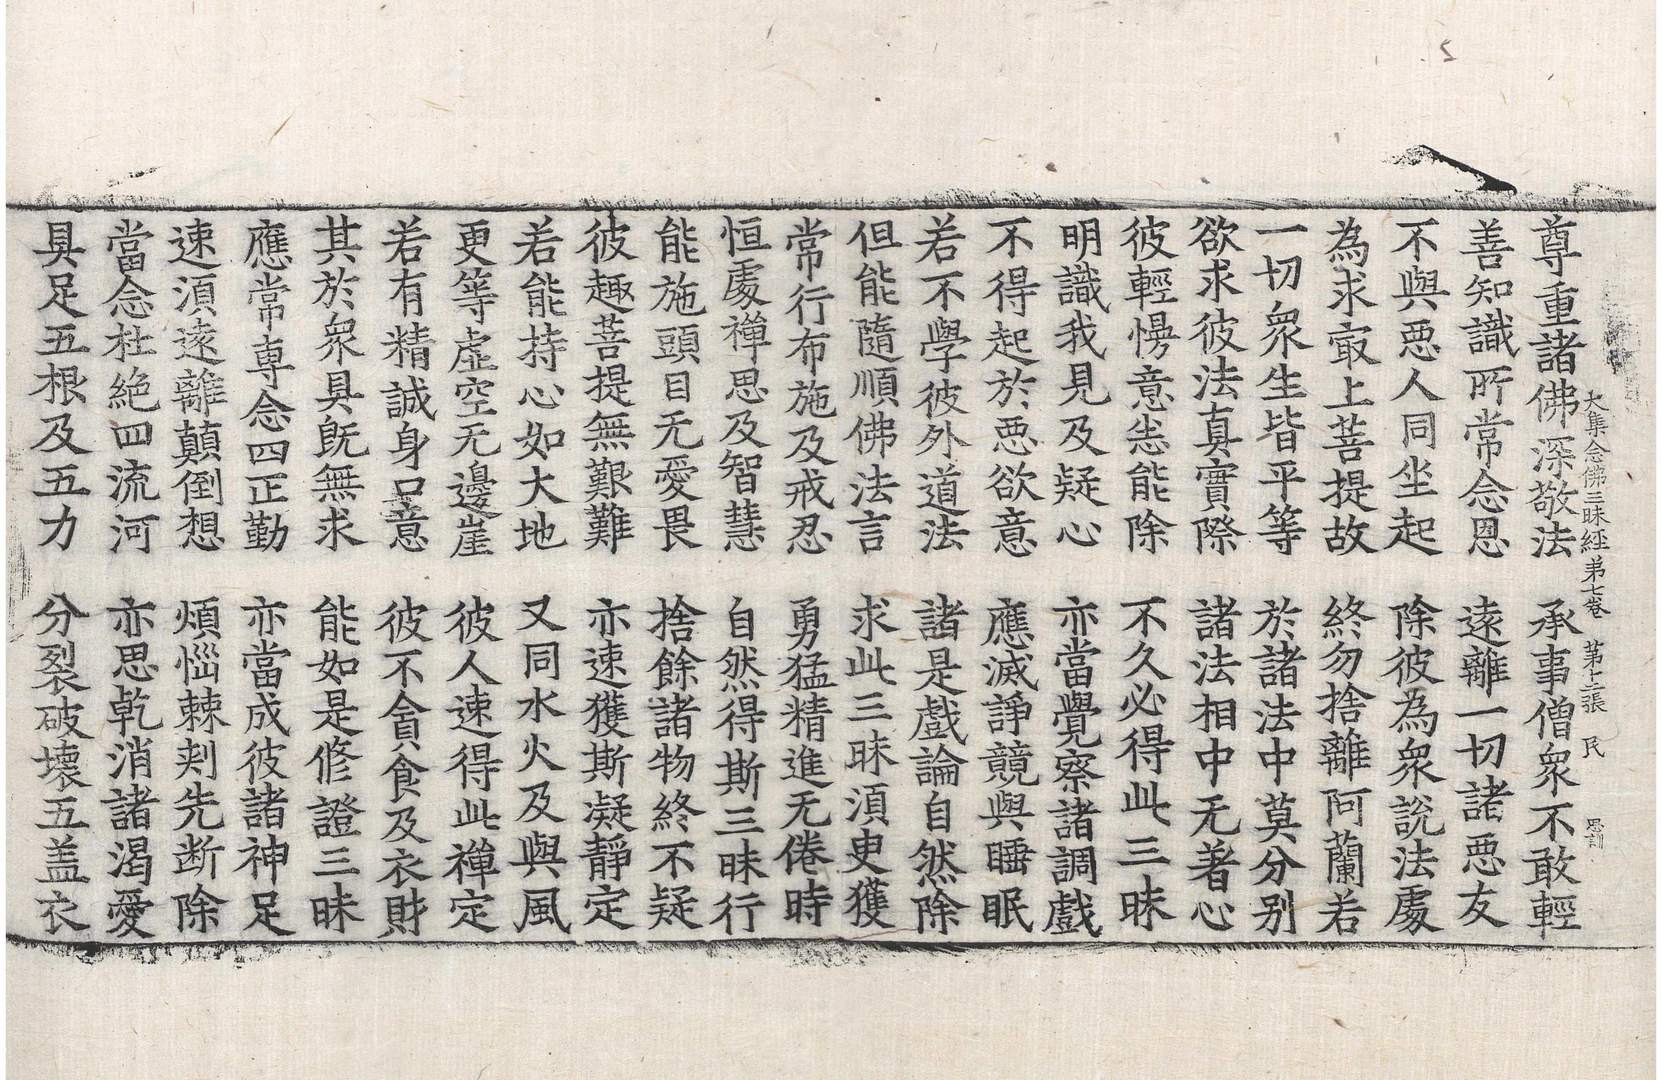 大集念佛三昧經 第七卷 第十二張 民
尊重諸佛深敬法 承事僧眾不敢輕
善知識所常念恩 遠離一切諸惡友
不與惡人同坐起 除彼為眾說法處
為求㝡上菩提故 終勿捨離阿蘭若
一切眾生皆平等 於諸法中莫分別
欲求彼法真實際 諸法相中无著心
彼輕慢意恙能除 不久必得此三昧
明識我見及疑心 亦當覺察諸調戲
不得起於惡欲意 應滅諍競與睡眠
若不學彼外道法 諸是戲論自然除
但能隨順佛法言 求此三昧須臾獲
常行布施及戒忍 勇猛精進无倦時
恒處禪思及智慧 自然得斯三昧行
能施頭目无愛畏 捨餘諸物終不疑
彼趣菩提無艱難 亦速獲斯凝靜定
若能持心如大地 又同水火及與風
更等虛空无邊崖 彼人速得此禪定
若有精誠身口意 彼不貪食及衣財
其於眾具既無求 能如是修證三昧
應常專念四正勤 亦當成彼諸神足
速須遠離顛倒想 煩惱棘刾先断除
當念杜絕四流河 亦思乾消諸渴愛
具足五根及五力 分裂破壞五盖衣